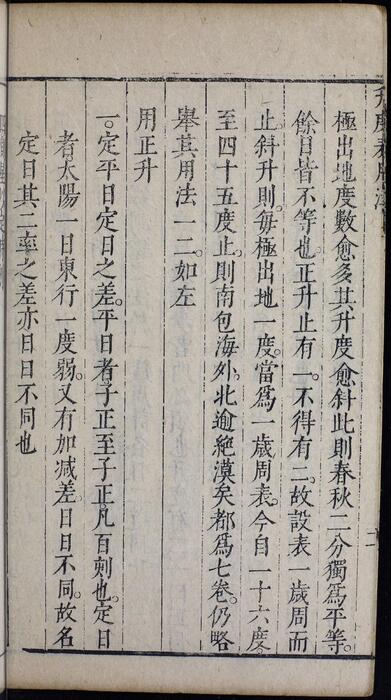 極出地度數愈多其升度愈斜此則春秋二分獨爲平等。
餘日皆不等也。正升止有一。不得有二。故設表一歲周而
止。斜升則每極出地一度。當爲一歲周表。今自一十六度。
至四十五度止。則南包海外。北逾絕漠矣。都爲七卷。仍略
舉其用法一二。如左
用正升
一。定平日定日之差。平日者。子正至子正。凡百刻也。定日
者。太陽一日東行一度弱。又有加減差。日日不同。故名
定日。其二率之差。亦日日不同也